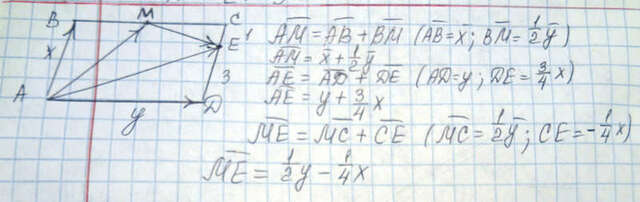 B M C
x E 1
3
A y D
AM̅ = AB̅ + BM̅ (AB̅ = x̅; BM̅ = 1/2 y̅)
AM̅ = x̅ + 1/2 y̅
AE̅ = AD̅ + DE̅ (AD̅ = y; DE̅ = 3/4 x)
AE̅ = y + 3/4 x
ME̅ = MC̅ + CE̅ (MC̅ = 1/2 y̅; CE̅ = -1/4 x)
ME̅ = 1/2 y - 1/4 x